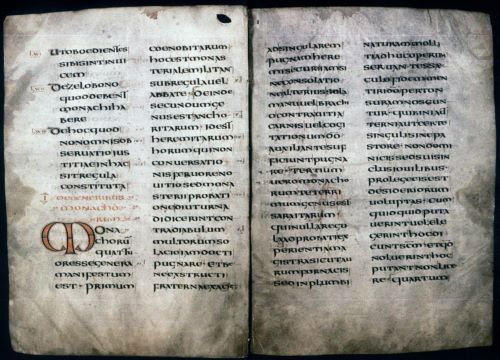 UT OBOEDIENTES
SIBI SINT INUI
CEM
DE ZELO BONO
QUOD DEBENT
MONACHI HA
BERE
DE HOC QUOD
NON OMNIS OB
SERUATIO IUS
TITIAE IN HAC
SIT REGULA
CONSTITUTA
I DE GENERIBUS
MONACHO
RUM
MONA
CHORU
QUATTU
OR ESSE GENERA
MANIFESTUM
EST PRIMUM
COENOBITARUM
HOC EST MONAS
TERIALE MILITAN
SUB REGULA UEL
ABBATE DEINDE
SECUNDUM GE
NUS EST ANCHO
RITARUM ID EST
HEREMITARUM
HORUM QUI NON
CONUERSATIO
NIS FERUORE NO
UITIO SED MONA
STERII PROBATI
ONE DIUTURNA
DIDICERINT CON
TRA DIABULUM
MULTORUM SO
LACIO IAM DOCTI
PUGNARE ET BE
NE EXSTRUCTI
FRATERNA EX ACIE
AD SINGULAREM
PUGNAM HERE
MI SECURI IAM SI
NE CONSOLATIO
NE ALTERIUS SOLA
MANU UEL BRACHI
O CONTRA UITIA
CARNIS UEL COGI
TATIONUM DO
AUXILIANTE SUF
FICIUNT PUGNA
RE TERTIUM
UERO MONACHO
RUM TETERRI
MUM GENUS EST
SARABAITARUM
QUI NULLA REGU
LA ADPROBATI EX
PERIENTIA MA
GISTRI SICUT AU
RUM FORNACIS
SED IN PLUMBI
NATURA MOLLI
TI ADHUC OPERIB
SERUANTES SAE
CULO FIDEM MEN
TIRI DO PER TON
SURAM NOSCUN
TUR QUI BINI AUT
TERNI AUT CERTE
SINGULI SINE PA
STORE NON DOMI
NICIS SED SUIS IN
CLUSI OUILIBUS
PRO LEGE EIS EST
DESIDERIORUM
UOLUPTAS CUM
QUICQUID PUTA
UERINT UEL ELE
GERINT HOC DI
CUNT SCM ET QD
NOLUERINT HOC
PUTANT NON LICE
RE QUARTUM